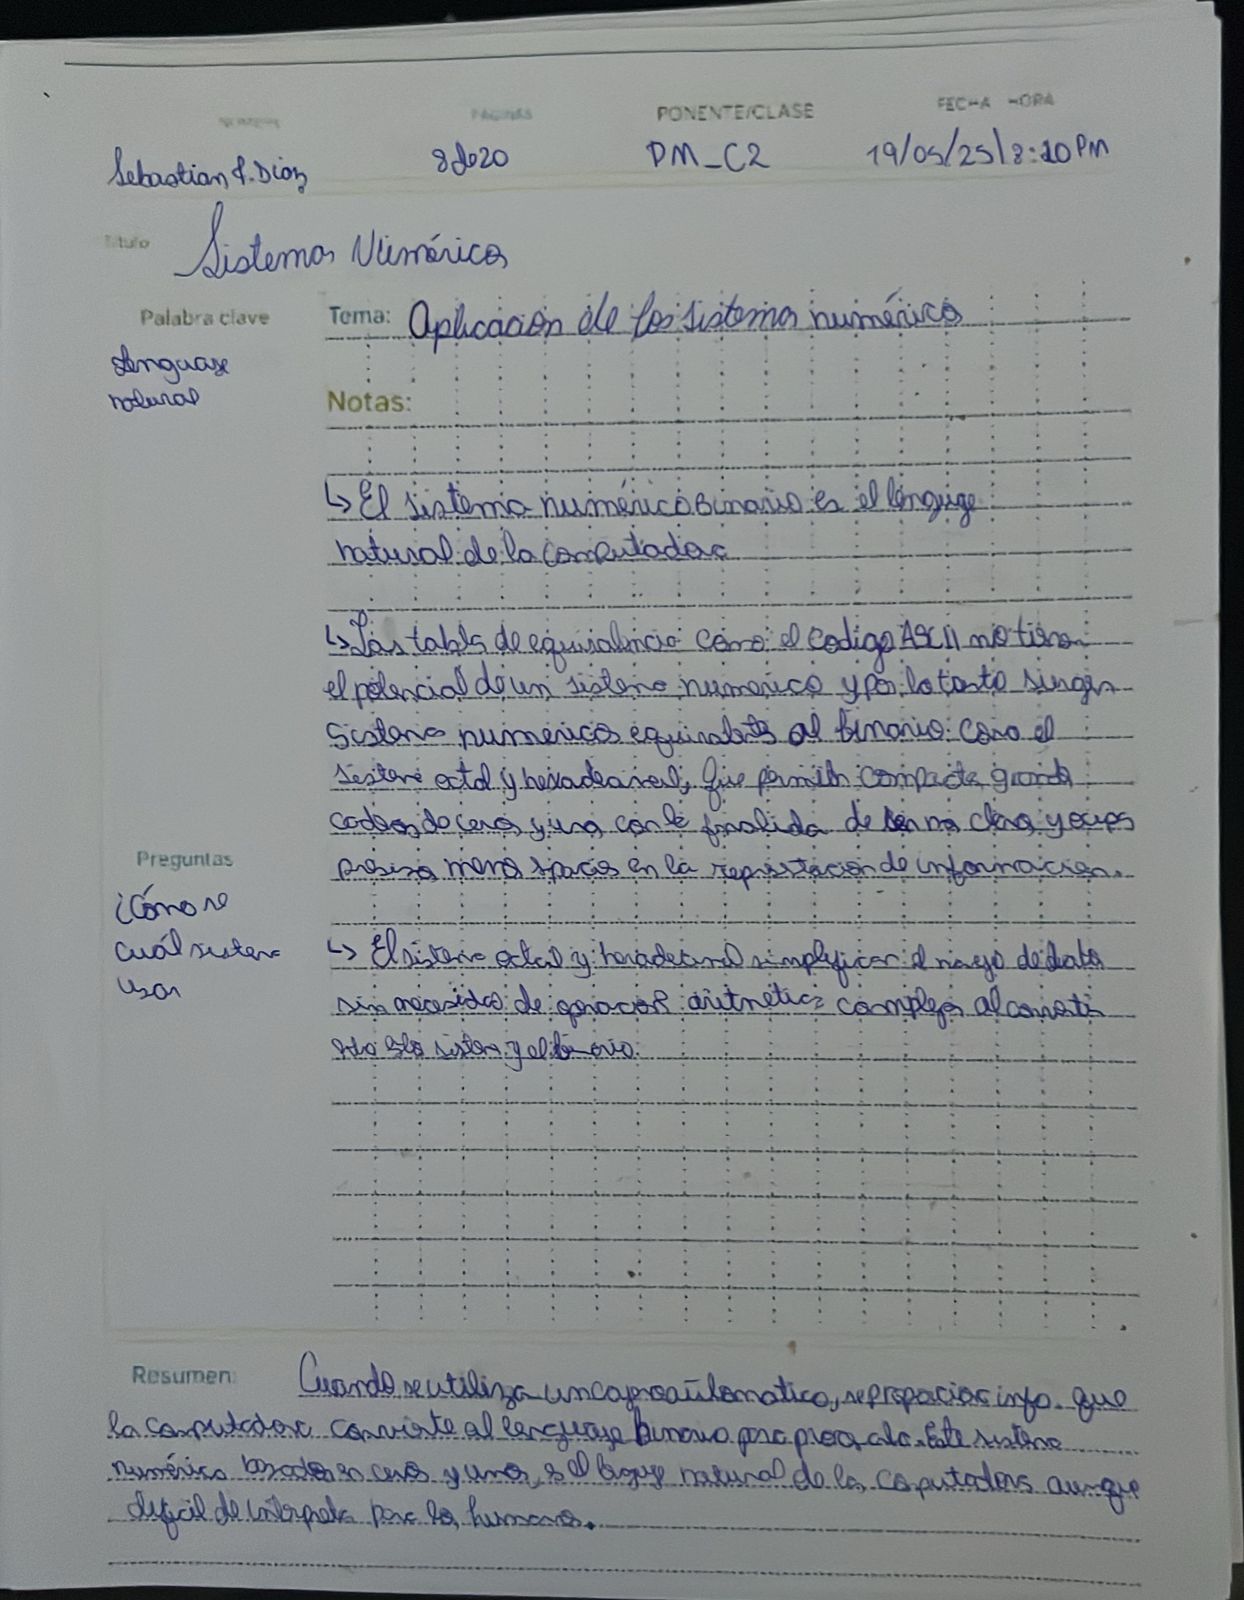 PAGINAS
PONENTE/CLASE
FECHA HORA
Sebastian F. Diaz
8 de 20
DM_C2
19/05/25/8:10 PM
Título Sistemas Numéricos
Palabra clave
Tema: Aplicacion de los sistemas numérico
Lenguaje
natural
Notas:
↳ El sistema numérico Binario es el lenguaje
natural de la computadora
↳ Las tabla de equivalencia como el codigo ASCII no tiene
el potencial de un sistema numerico y por lo tanto surgen
sistema numericos equivalentes al binario como el
sistema octal y hexadecimal, que permiten compactar grande
cadenas de ceros y uno con la finalida de clara y ocupe
meno spacio en la representacion de informacion.
Preguntas
¿Cómo se
cuál sistema
usar
↳ El sistema octal y hexadecimal simplificar el manejo de datos
sin necesidad de operacion aritmetica compleja al convertir
sistema y el binario.
Resumen: Cuando se utiliza un cajero automatico, se proporciona info. que
la computadora convierte al lenguaje Binario para procesarlo. Este sistema
numérico basado en ceros y unos, es el lenguaje natural de la computadora aunque
dificil de interpretar para los humanos.